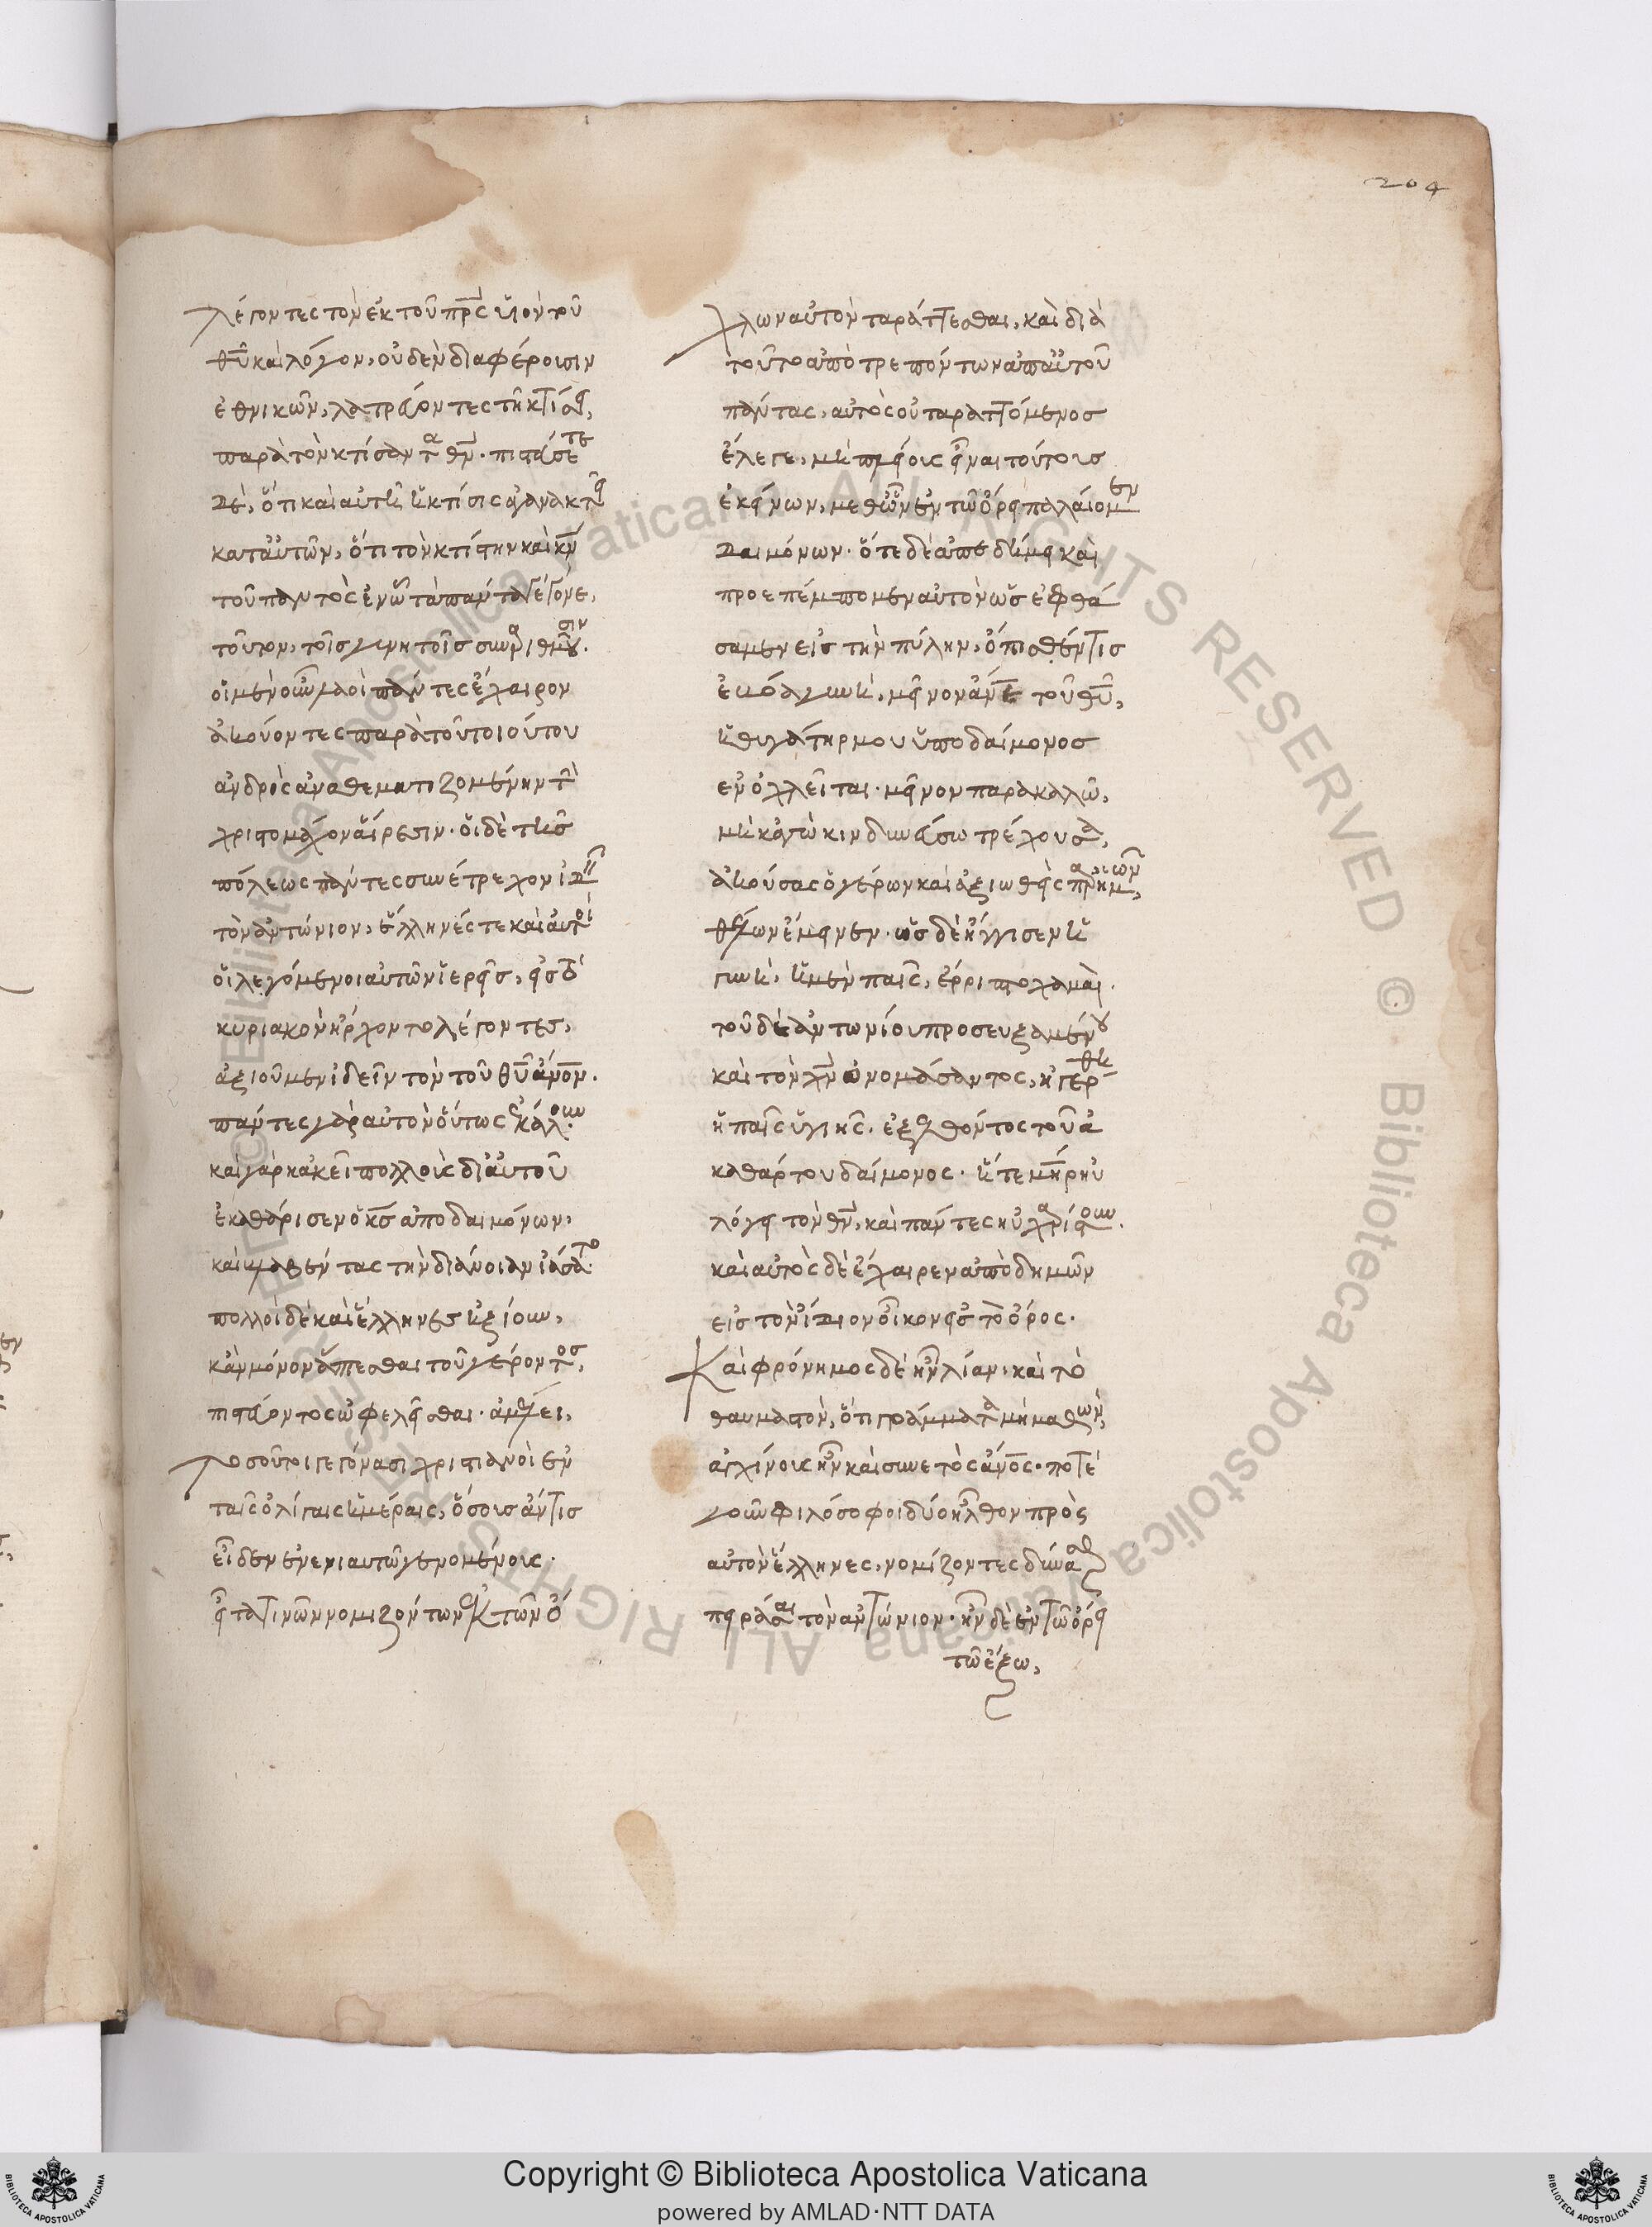 204
λέγοντες τὸν ἐκ τοῦ πρς υἱὸν τοῦ
θυ καὶ λόγον, οὐδὲν διαφέρουσιν
ἐθνικῶν, λατρεύοντες τῆ κτίσει,
παρὰ τὸν κτίσαντα θν. πιστεύσετε
δὲ, ὅτι καὶ αὐτὴ ἡ κτίσις ἀγανακτεῖ
κατ αὐτῶν, ὅτι τὸν κτίστην καὶ κν
τοῦ παντὸς ἐν ὧ τὰ πάντα γέγονε,
τοῦτον, τοῖς γενητοῖς συναριθμοῦσιν.
οἱ μὲν οὖν λαοὶ πάντες ἔχαιρον
ἀκούοντες παρὰ τοῦ τοιούτου
ἀνδρὸς ἀναθεματιζομένην τὴν
χριστομάχον αἵρεσιν. οἱ δὲ τῆς
πόλεως πάντες συνέτρεχον ἰδεῖν
τὸν ἀντώνιον, ἕλληνές τε καὶ αὐτοὶ
οἱ λεγόμενοι αὐτῶν ἱερεῖς, εἰς τὸ
κυριακὸν ἤρχοντο λέγοντες,
ἀξιοῦμεν ἰδεῖν τὸν τοῦ θυ ἄνον.
πάντες γὰρ αὐτὸν οὕτως ἐκάλουν.
καὶ γὰρ κἀκεῖ πολλοὺς δι αὐτοῦ
ἐκαθάρισεν ὁ κς ἀπο δαιμόνων,
καὶ βλαβέντας τὴν διάνοιαν ἰάσατο.
πολλοὶ δὲ καὶ ἕλληνες ἠξίουν,
κἂν μόνον ἅπτεσθαι τοῦ γέροντος,
πιστεύοντος ὠφελεῖσθαι. ἀμέλει,
τοσοῦτοι γεγόνασι χριστιανοὶ ἐν
ταῖς ὀλίγαις ἡμέραις, ὅσους ἄν τις
εἶδεν ἐν ἐνιαυτῶ γενομένους.
εἶτά τινῶν νομιζόντων ἐκ τῶν ὄ
χλων αὐτὸν ταράττεσθαι, καὶ διὰ
τοῦτο ἀποτρεπόντων ἀπ αὐτοῦ
πάντας, αὐτὸς οὐ ταραττόμενος
ἔλεγε, μὴ πλείους εἶναι τούτους
ἐκείνων, μεθ ὧν ἐν τῶ ὄρει παλαίομεν
δαιμόνων. ὅτε δὲ ἀπεδήμει καὶ
προεπέμπομεν αὐτὸν ὡς ἐφθά
σαμεν εἰς τὴν πύλην, ὄπισθέν τις
ἐβόα γυνὴ, μεῖνον ἄνε τοῦ θυ,
ἡ θυγάτηρ μου ὑπο δαίμονος
ἐνοχλεῖται. μεῖνον παρακαλῶ,
μὴ κἀγὼ κινδυνεύσω τρέχουσα,
ἀκούσας ὁ γέρων καὶ ἀξιωθεὶς παρ ἡμῶν,
θέλων ἔμεινεν. ὡς δὲ ἤγγισεν ἡ
γυνὴ, ἡ μὲν παῖς, ἔρριπτο χαμαὶ.
τοῦ δὲ ἀντωνίου προσευξαμένου
καὶ τὸν χν ὀνομάσαντος, ἠγέρθη
ἡ παῖς ὑγιὴς. ἐξελθόντος τοῦ ἀ
καθάρτου δαίμονος. ἥ τε μηρ ηὐ
λόγει τὸν θν, καὶ πάντες ηὐχαρίστουν.
καὶ αὐτὸς δὲ ἔχαιρεν ἀποδημῶν
εἰς τὸν ἴδιον οἶκον εἰς τὸ ὄρος.
Καὶ φρόνημος δὲ ἦν λίαν. καὶ τὸ
θαυμαστὸν, ὅτι γράμματα μὴ μαθὼν,
ἀγχίνους ἦν καὶ συνετὸς ἄνος. ποτὲ
γοῦν φιλόσοφοι δύο ἦλθον πρὸς
αὐτὸν ἕλληνες, νομίζοντες δύνασθαι
πειρᾶσαι τὸν ἀντώνιον. ἦν δὲ ἐν τῶ ὄρει
τῶ ἔξω,
Copyright © Biblioteca Apostolica Vaticana
powered by AMLAD·NTT DATA